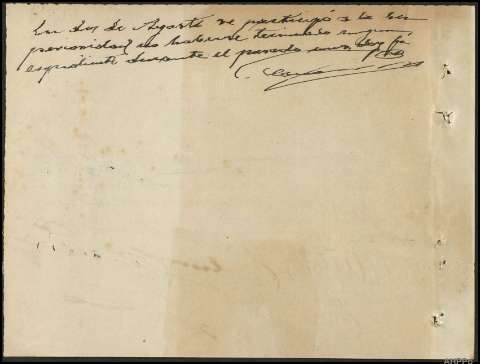 En dos de Agosto se participó a la Su
perioridad no haberse terminado ningún
expediente durante el pasado mes. Doy fé